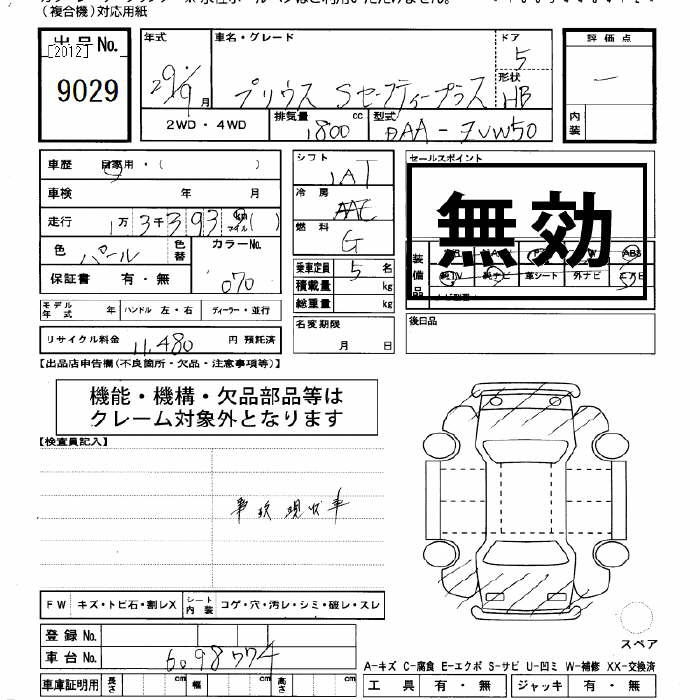 (複合機)対応用紙
出品No.
[2012]
9029
年式
29/9月
車名・グレード
プリウス Sセーフティープラス
ドア
5
形状
HB
評価点
—
内装
2WD・4WD
排気量
1800 cc
型式
DAA-ZVW50
車歴 自家用・( )
車検 年 月
走行 1万3千393 km マイル ( )
色 パール
色替
カラーNo.
070
保証書 有・無
モデル年式 年
ハンドル 左・右
ディーラー・並行
リサイクル料金 11,480 円 預託済
シフト
IAT
冷房
AAC
燃料
G
乗車定員 5 名
積載量 kg
総重量 kg
名変期限
月 日
セールスポイント
無効
装備品
ABS
革シート
外ナビ
後日品
【出品店申告欄(不良箇所・欠品・注意事項等)】
機能・機構・欠品部品等は
クレーム対象外となります
【検査員記入】
事故現状車
FW キズ・トビ石・割レX
シート内装 コゲ・穴・汚レ・シミ・破レ・スレ
登録No.
車台No. 6098774
車庫証明用 長さ cm 幅 cm 高さ cm
スペア
A-キズ C-腐食 E-エクボ S-サビ U-凹ミ W-補修 XX-交換済
工具 有・無 ジャッキ 有・無